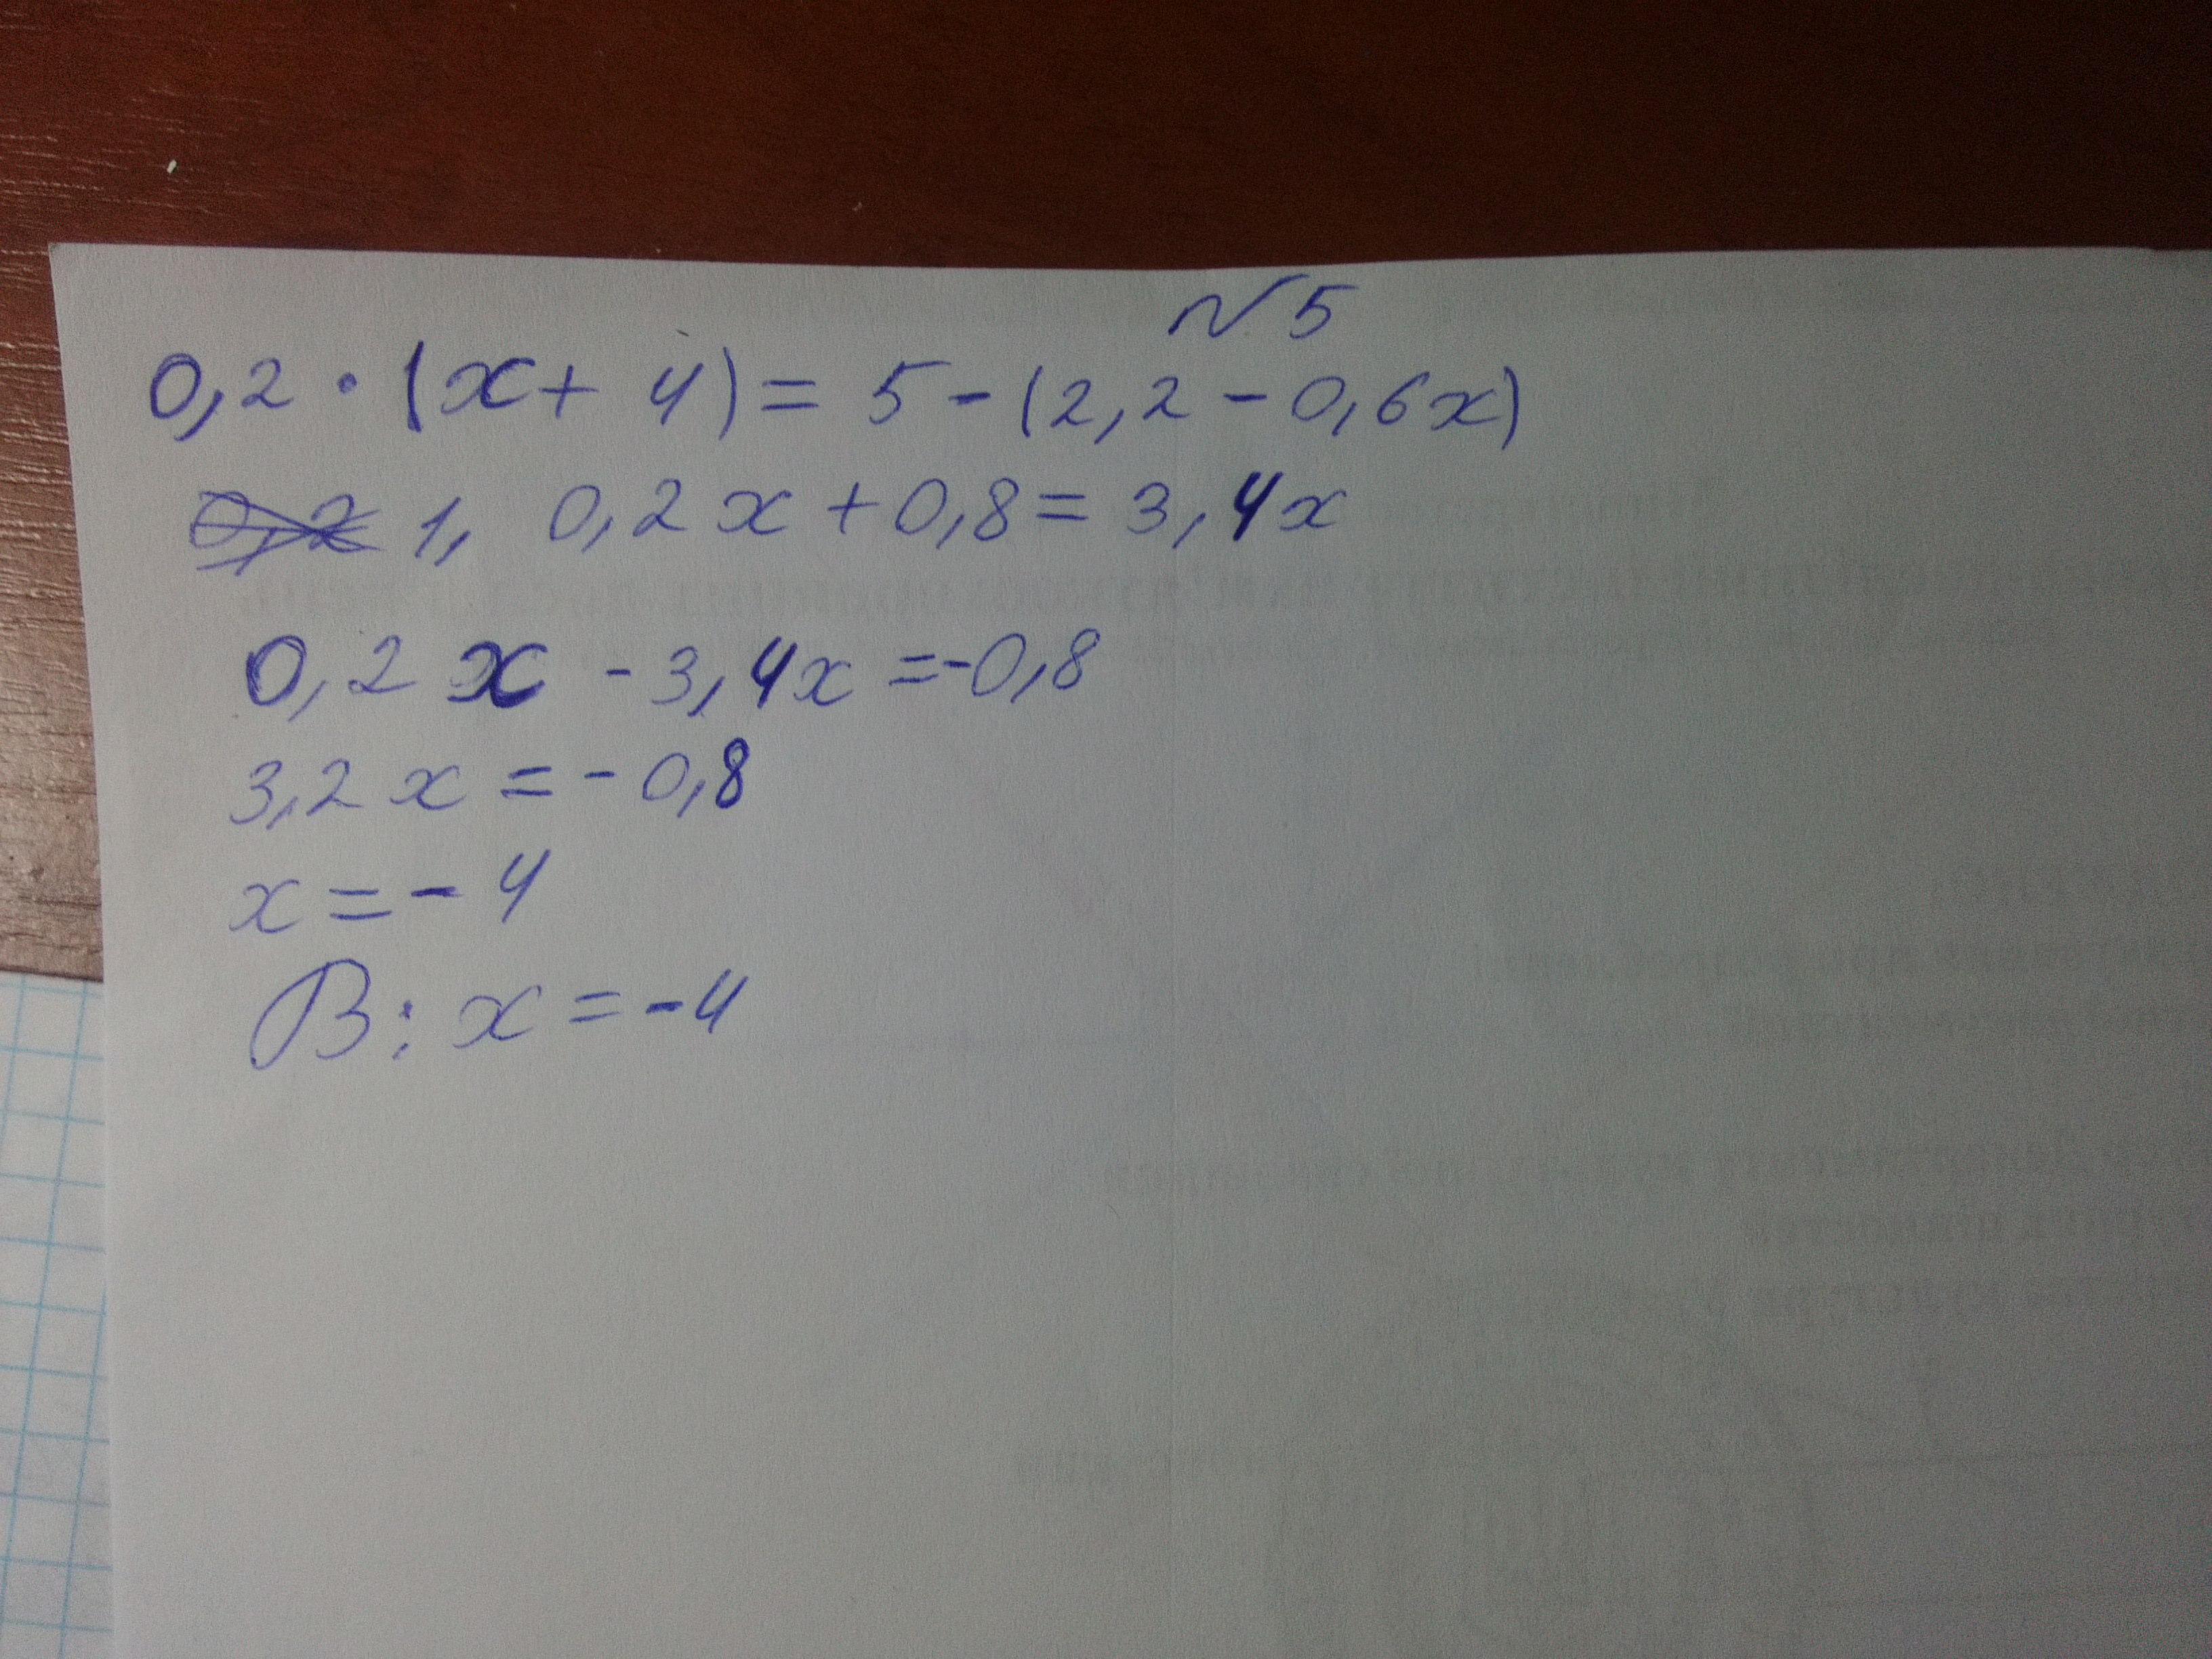 №5
0,2 · (x + 4) = 5 - (2,2 - 0,6x)
1, 0,2x + 0,8 = 3,4x
0,2x - 3,4x = -0,8
3,2x = -0,8
x = -4
В: x = -4